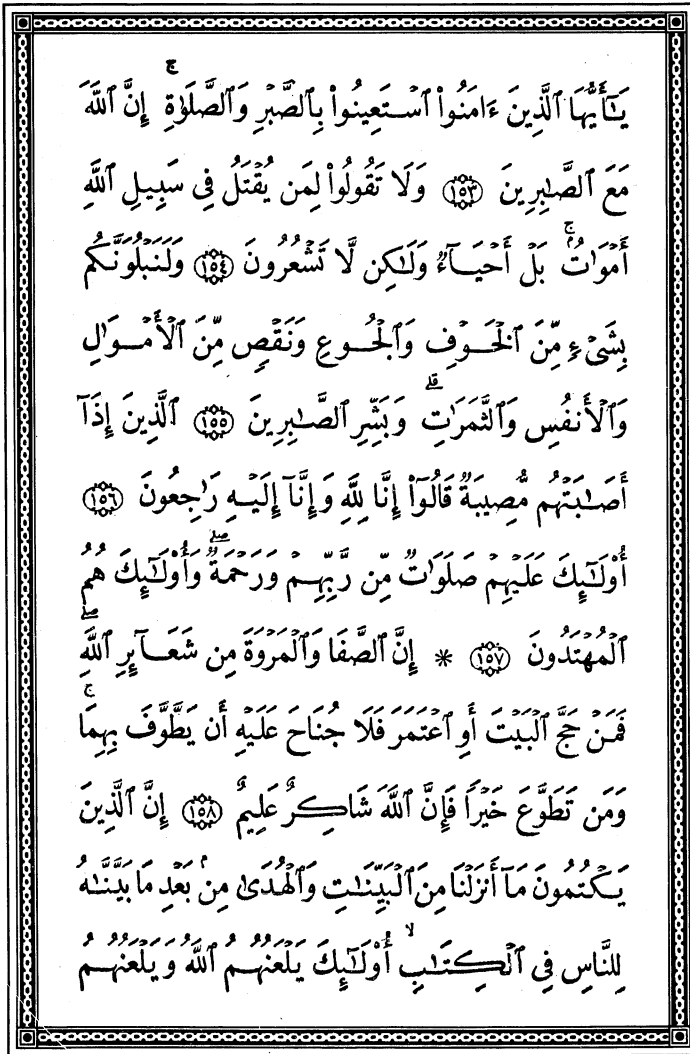 يَـٰٓأَيُّهَا ٱلَّذِينَ ءَامَنُوا۟ ٱسْتَعِينُوا۟ بِٱلصَّبْرِ وَٱلصَّلَوٰةِ ۚ إِنَّ ٱللَّهَ
مَعَ ٱلصَّـٰبِرِينَ ١٥٣ وَلَا تَقُولُوا۟ لِمَن يُقْتَلُ فِى سَبِيلِ ٱللَّهِ
أَمْوَٰتٌۢ ۚ بَلْ أَحْيَآءٌ وَلَـٰكِن لَّا تَشْعُرُونَ ١٥٤ وَلَنَبْلُوَنَّكُم
بِشَىْءٍ مِّنَ ٱلْخَوْفِ وَٱلْجُوعِ وَنَقْصٍ مِّنَ ٱلْأَمْوَٰلِ
وَٱلْأَنفُسِ وَٱلثَّمَرَٰتِ ۗ وَبَشِّرِ ٱلصَّـٰبِرِينَ ١٥٥ ٱلَّذِينَ إِذَآ
أَصَـٰبَتْهُم مُّصِيبَةٌ قَالُوٓا۟ إِنَّا لِلَّهِ وَإِنَّآ إِلَيْهِ رَٰجِعُونَ ١٥٦
أُو۟لَـٰٓئِكَ عَلَيْهِمْ صَلَوَٰتٌ مِّن رَّبِّهِمْ وَرَحْمَةٌ ۖ وَأُو۟لَـٰٓئِكَ هُمُ
ٱلْمُهْتَدُونَ ١٥٧ * إِنَّ ٱلصَّفَا وَٱلْمَرْوَةَ مِن شَعَآئِرِ ٱللَّهِ ۖ
فَمَنْ حَجَّ ٱلْبَيْتَ أَوِ ٱعْتَمَرَ فَلَا جُنَاحَ عَلَيْهِ أَن يَطَّوَّفَ بِهِمَا ۚ
وَمَن تَطَوَّعَ خَيْرًا فَإِنَّ ٱللَّهَ شَاكِرٌ عَلِيمٌ ١٥٨ إِنَّ ٱلَّذِينَ
يَكْتُمُونَ مَآ أَنزَلْنَا مِنَ ٱلْبَيِّنَـٰتِ وَٱلْهُدَىٰ مِنۢ بَعْدِ مَا بَيَّنَّـٰهُ
لِلنَّاسِ فِى ٱلْكِتَـٰبِ ۙ أُو۟لَـٰٓئِكَ يَلْعَنُهُمُ ٱللَّهُ وَيَلْعَنُهُمُ